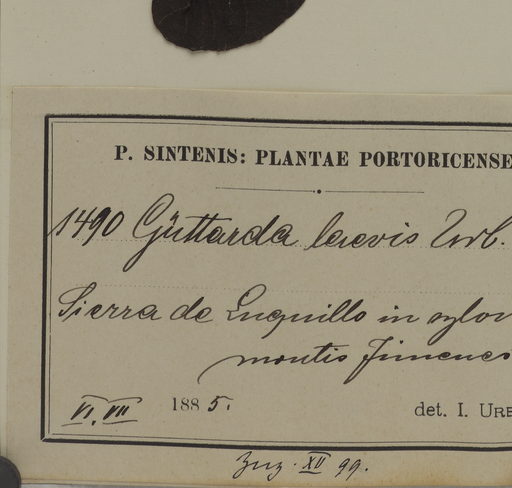 P. SINTENIS: PLANTAE PORTORICENSE
1490 Guttarda laevis Urb.
Sierra de Luquillo in sylv
montis Jimenes
VI. VII 1885. det. I. URB
XII 99.